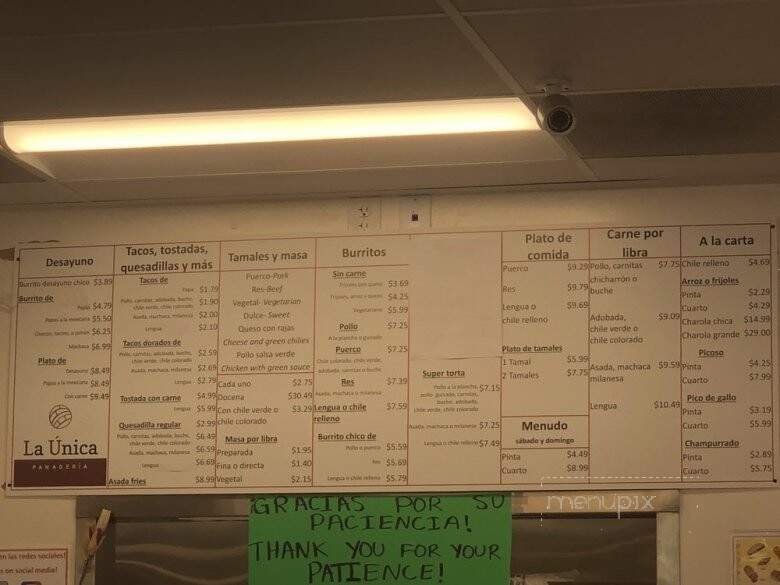 Desayuno
Burrito desayuno chico $3.89
Burrito de
Papas $4.79
Papas a la mexicana $5.50
$6.25
Machaca $6.99
Plato de
Desayuno $8.49
Papas a la mexicana $8.49
Con carne $9.49
La Única
PANADERÍA
Tacos, tostadas,
quesadillas y más
Tacos de
Papa $1.79
Pollo, carnitas, adobada, buche, $1.90
chile verde, chile colorado
Asada, machaca, milanesa $2.00
Lengua $2.10
Tacos dorados de
Pollo, carnitas, adobada, buche, $2.59
chile verde, chile colorado
Asada, machaca, milanesa $2.69
Lengua $2.79
Tostada con carne $4.99
Lengua $5.99
Quesadilla regular $2.99
Pollo, carnitas, adobada, buche, $6.49
chile verde, chile colorado
Asada, machaca, milanesa $6.59
Lengua $6.69
Asada fries $8.99
Tamales y masa
Puerco-Pork
Res-Beef
Vegetal- Vegetarian
Dulce- Sweet
Queso con rajas
Cheese and green chilies
Pollo salsa verde
Chicken with green sauce
Cada uno $2.75
Docena $30.49
Con chile verde o $3.29
chile colorado
Masa por libra
Preparada $1.95
Fina o directa $1.40
Vegetal $2.15
Burritos
Sin carne
Frijoles con queso $3.69
Frijoles, arroz y queso $4.25
Vegetariano $5.99
Pollo $7.25
A la plancha o guisado
Puerco $7.25
Chile colorado, chile verde,
adobada, carnitas o buche
Res $7.39
Asada, machaca o milanesa
Lengua o chile $7.59
relleno
Burrito chico de
Pollo o puerco $5.59
Res $5.69
Lengua o chile relleno $5.79
Super torta
Pollo a la plancha, $7.15
pollo guisado, carnitas,
buche, adobada,
chile verde, chile colorado
Asada, machaca o milanesa $7.25
Lengua o chile relleno $7.49
Plato de
comida
Puerco $9.29
Res $9.79
Lengua o $9.69
chile relleno
Plato de tamales
1 Tamal $5.99
2 Tamales $7.75
Menudo
sábado y domingo
Pinta $4.49
Cuarto $8.99
Carne por
libra
Pollo, carnitas $7.75
chicharrón o
buche
Adobada, $9.09
chile verde o
chile colorado
Asada, machaca $9.59
milanesa
Lengua $10.49
A la carta
Chile relleno $4.69
Arroz o frijoles
Pinta $2.29
Cuarto $4.29
Charola chica $14.99
Charola grande $29.00
Picoso
Pinta $4.25
Cuarto $7.99
Pico de gallo
Pinta $3.19
Cuarto $5.99
Champurrado
Pinta $2.89
Cuarto $5.75
menupix
GRACIAS POR SU
PACIENCIA!
THANK YOU FOR YOUR
PATIENCE!
en las redes sociales!
on social media!